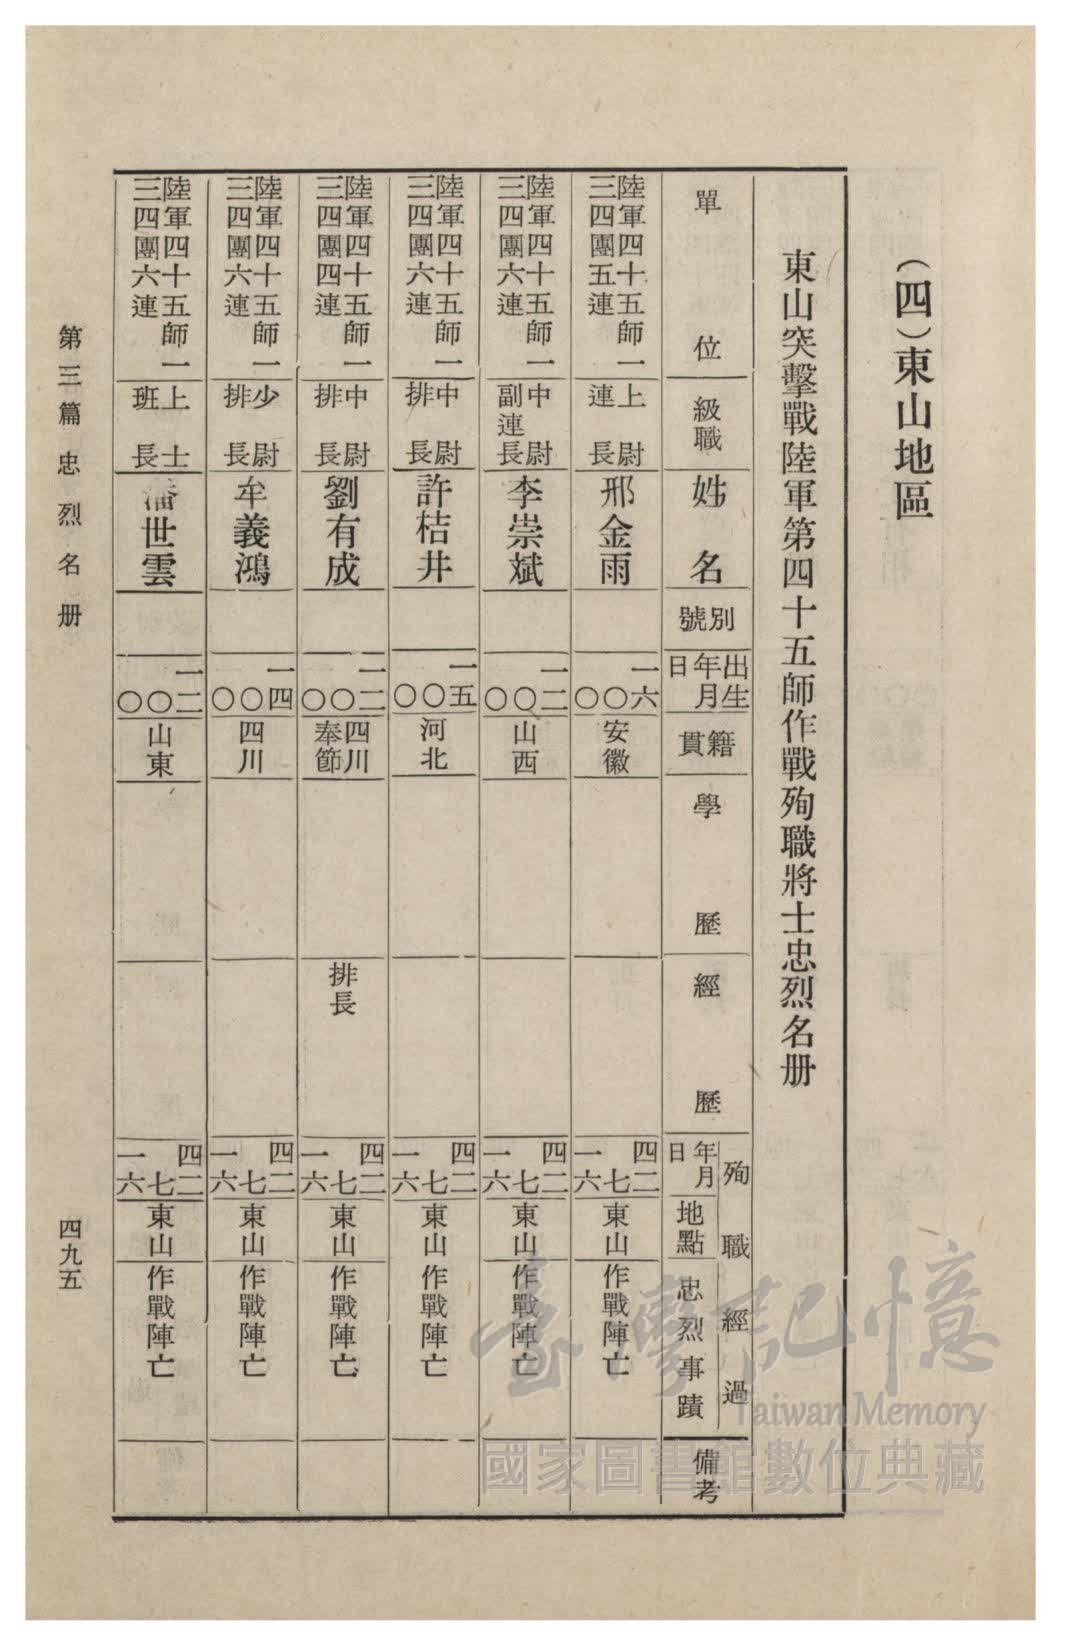 (四)東山地區
東山突擊戰陸軍第四十五師作戰殉職將士忠烈名册
單位
級職
姓名
別號
出生年月日
籍貫
學歷
經歷
殉職經過
年月日
地點
忠烈事蹟
備考
陸軍四十五師一
三四團五連
上尉
連長
邢金雨
一六
〇〇
安徽
四二
七
一六
東山
作戰陣亡
陸軍四十五師一
三四團六連
中尉
副連長
李崇斌
一二
〇〇
山西
四二
七
一六
東山
作戰陣亡
陸軍四十五師一
三四團六連
中尉
排長
許桔井
一五
〇〇
河北
四二
七
一六
東山
作戰陣亡
陸軍四十五師一
三四團四連
中尉
排長
劉有成
一二
〇〇
四川
奉節
排長
四二
七
一六
東山
作戰陣亡
陸軍四十五師一
三四團六連
少尉
排長
牟義鴻
一四
〇〇
四川
四二
七
一六
東山
作戰陣亡
陸軍四十五師一
三四團六連
上士
班長
潘世雲
一二
〇〇
山東
四二
七
一六
東山
作戰陣亡
第三篇 忠烈名册
四九五
臺灣記憶
Taiwan Memory
國家圖書館數位典藏